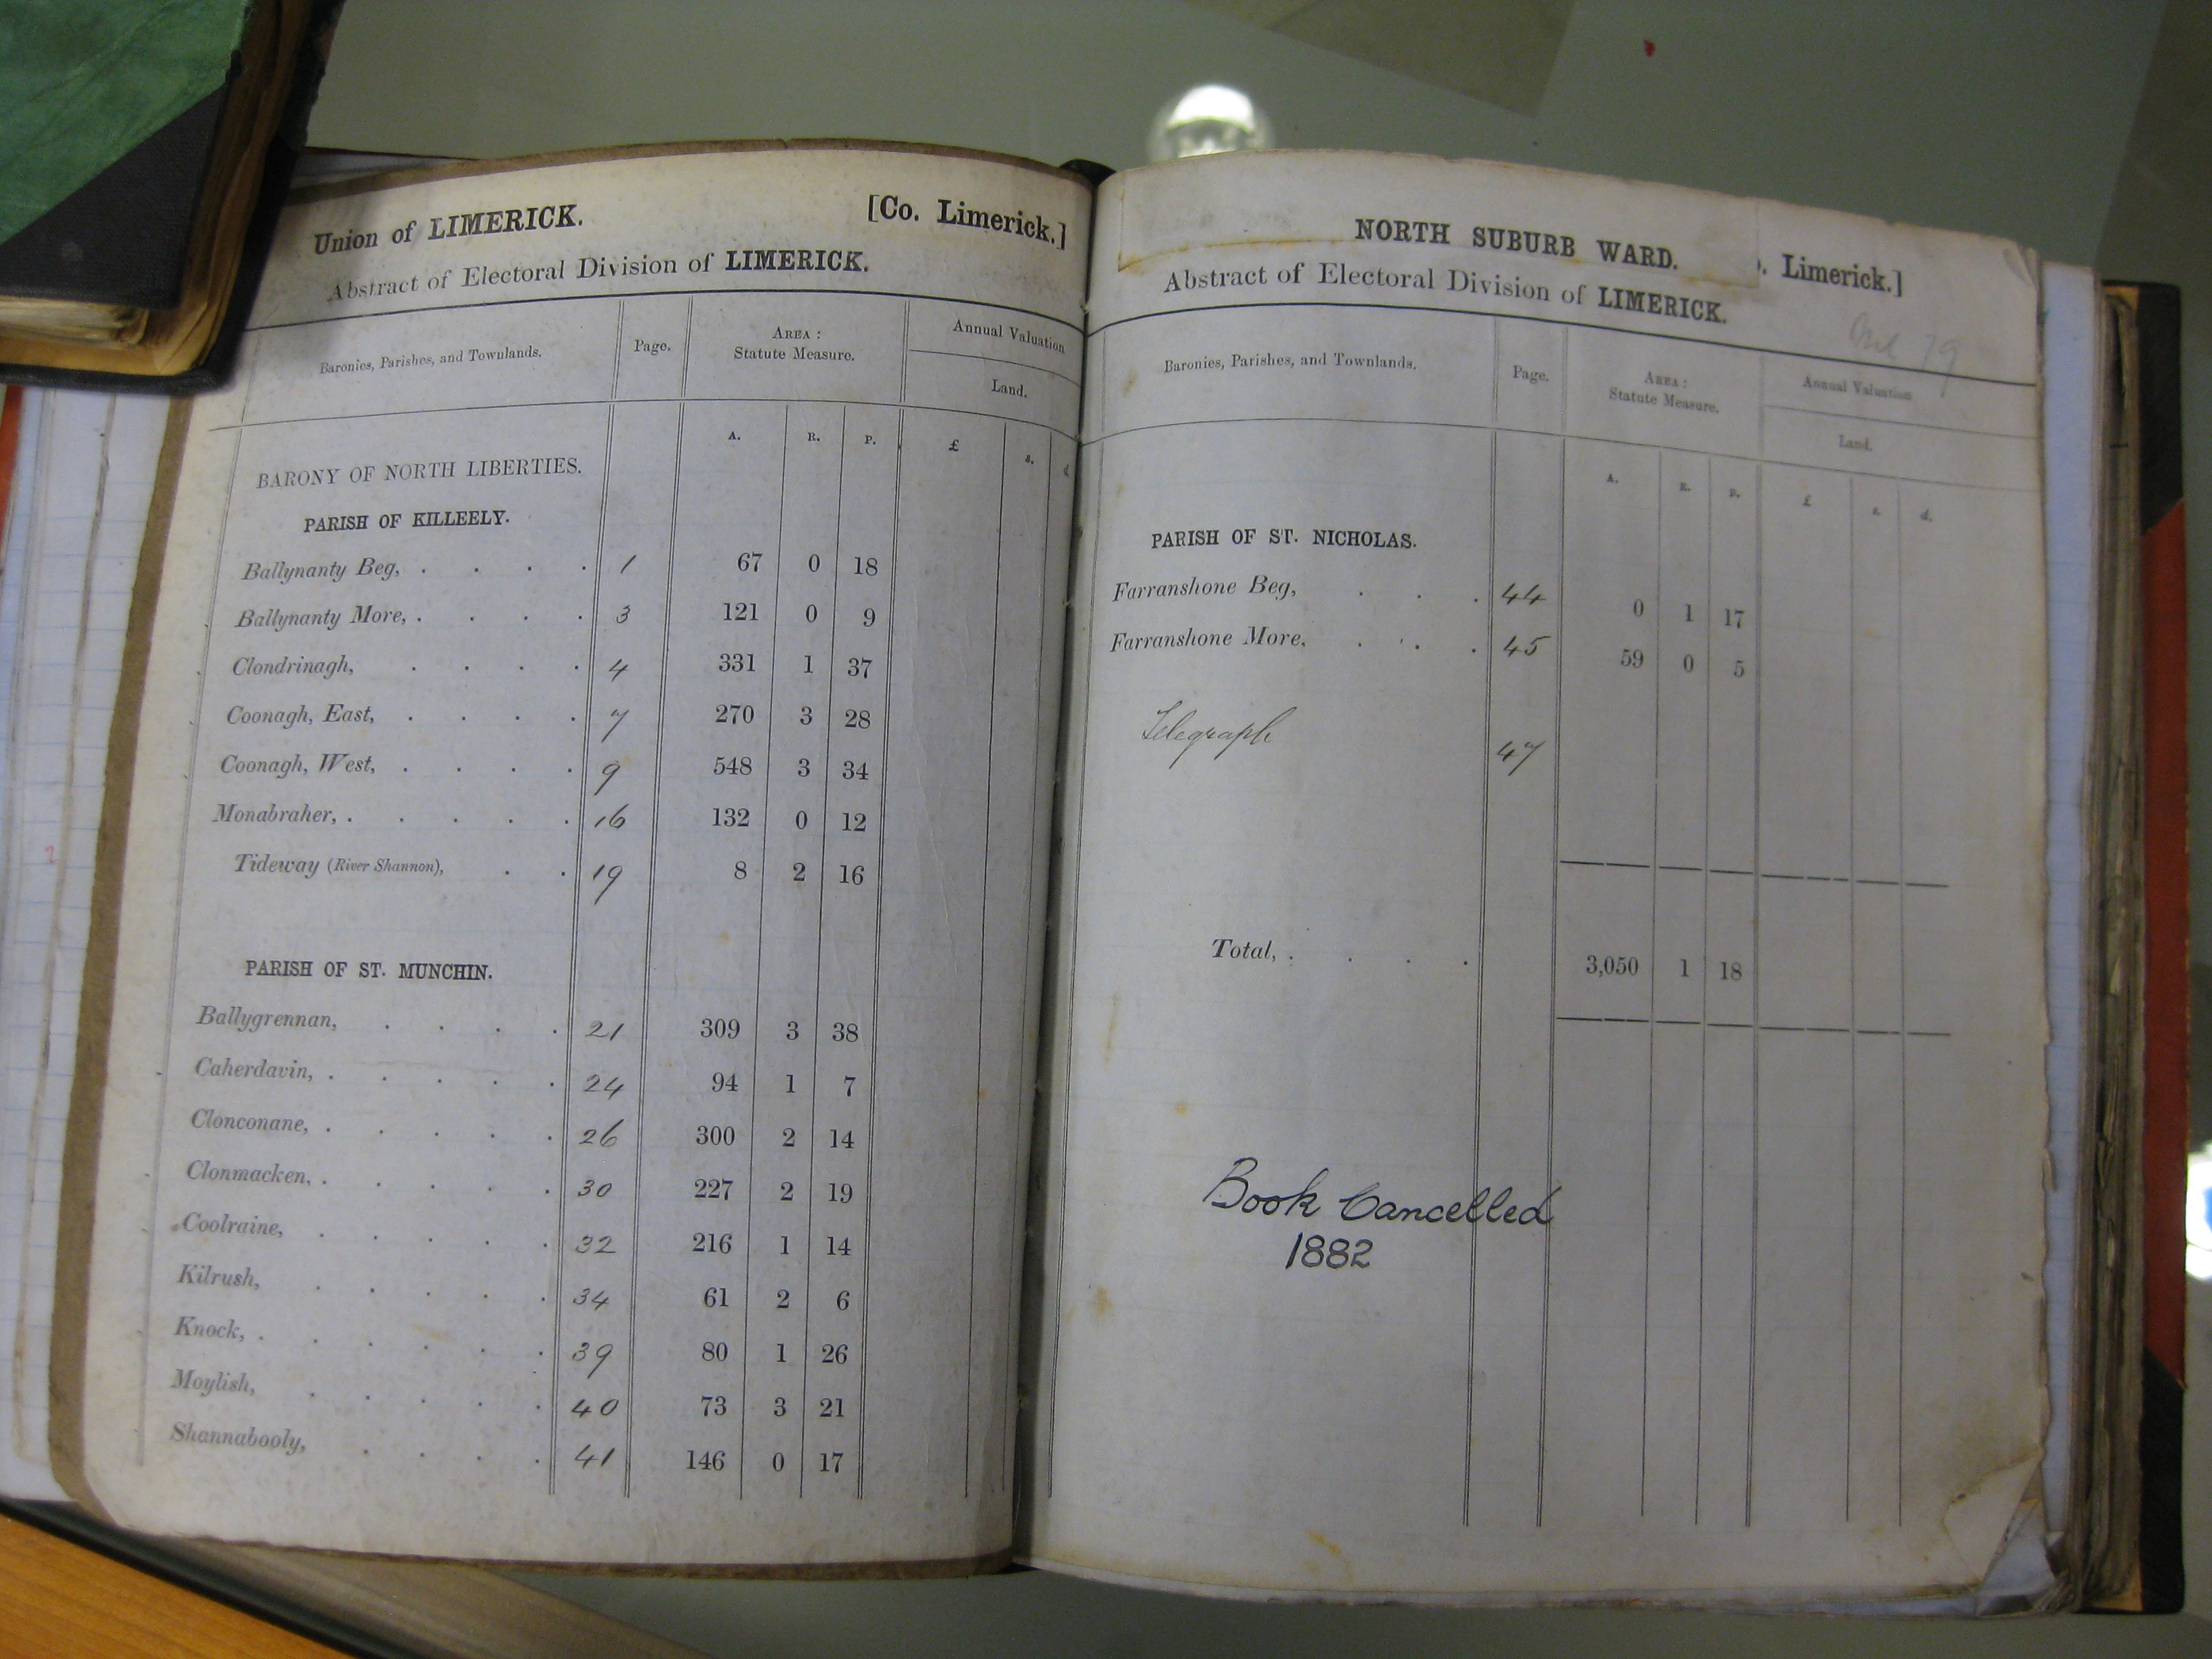 Union of LIMERICK. [Co. Limerick.]
Abstract of Electoral Division of LIMERICK.
Baronies, Parishes, and Townlands. Page. AREA: Statute Measure. Annual Valuation
Land.
A. R. P. £ s. d.
BARONY OF NORTH LIBERTIES.
PARISH OF KILLEELY.
Ballynanty Beg, . . . . 1 67 0 18
Ballynanty More, . . . . 3 121 0 9
Clondrinagh, . . . . 4 331 1 37
Coonagh, East, . . . . 7 270 3 28
Coonagh, West, . . . . 9 548 3 34
Monabraher, . . . . . 16 132 0 12
Tideway (River Shannon), . . 19 8 2 16
PARISH OF ST. MUNCHIN.
Ballygrennan, . . . . 21 309 3 38
Caherdavin, . . . . . 24 94 1 7
Clonconane, . . . . . 26 300 2 14
Clonmacken, . . . . . 30 227 2 19
Coolraine, . . . . . 32 216 1 14
Kilrush, . . . . . 34 61 2 6
Knock, . . . . . . 39 80 1 26
Moylish, . . . . . 40 73 3 21
Shannabooly, . . . . 41 146 0 17
NORTH SUBURB WARD. . Limerick.]
Abstract of Electoral Division of LIMERICK.
79
Baronies, Parishes, and Townlands. Page. AREA: Statute Measure. Annual Valuation
Land.
A. R. P. £ s. d.
PARISH OF ST. NICHOLAS.
Farranshone Beg, . . . 44 0 1 17
Farranshone More, . . . 45 59 0 5
Telegraph 47
Total, . . . . 3,050 1 18
Book Cancelled
1882